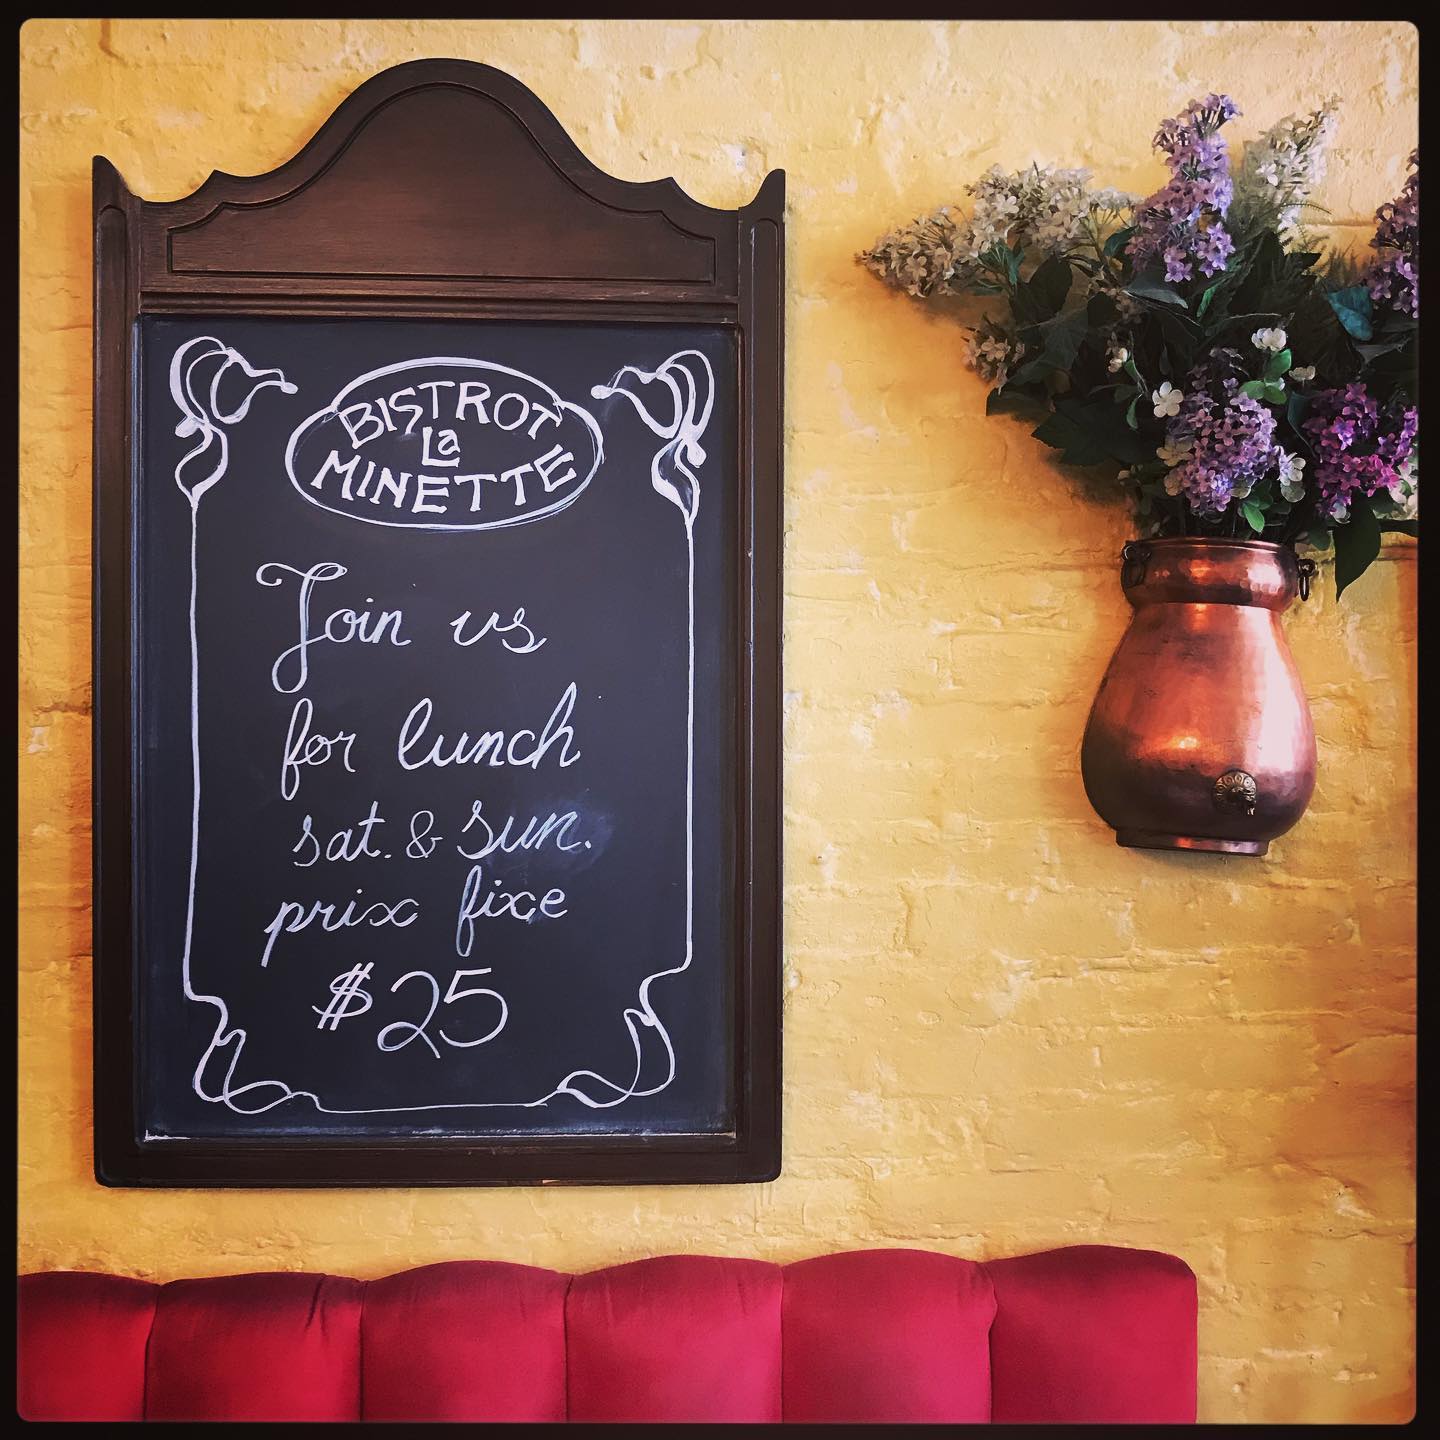 BISTROT
La
MINETTE
Join us
for lunch
sat. & sun.
prix fixe
$25